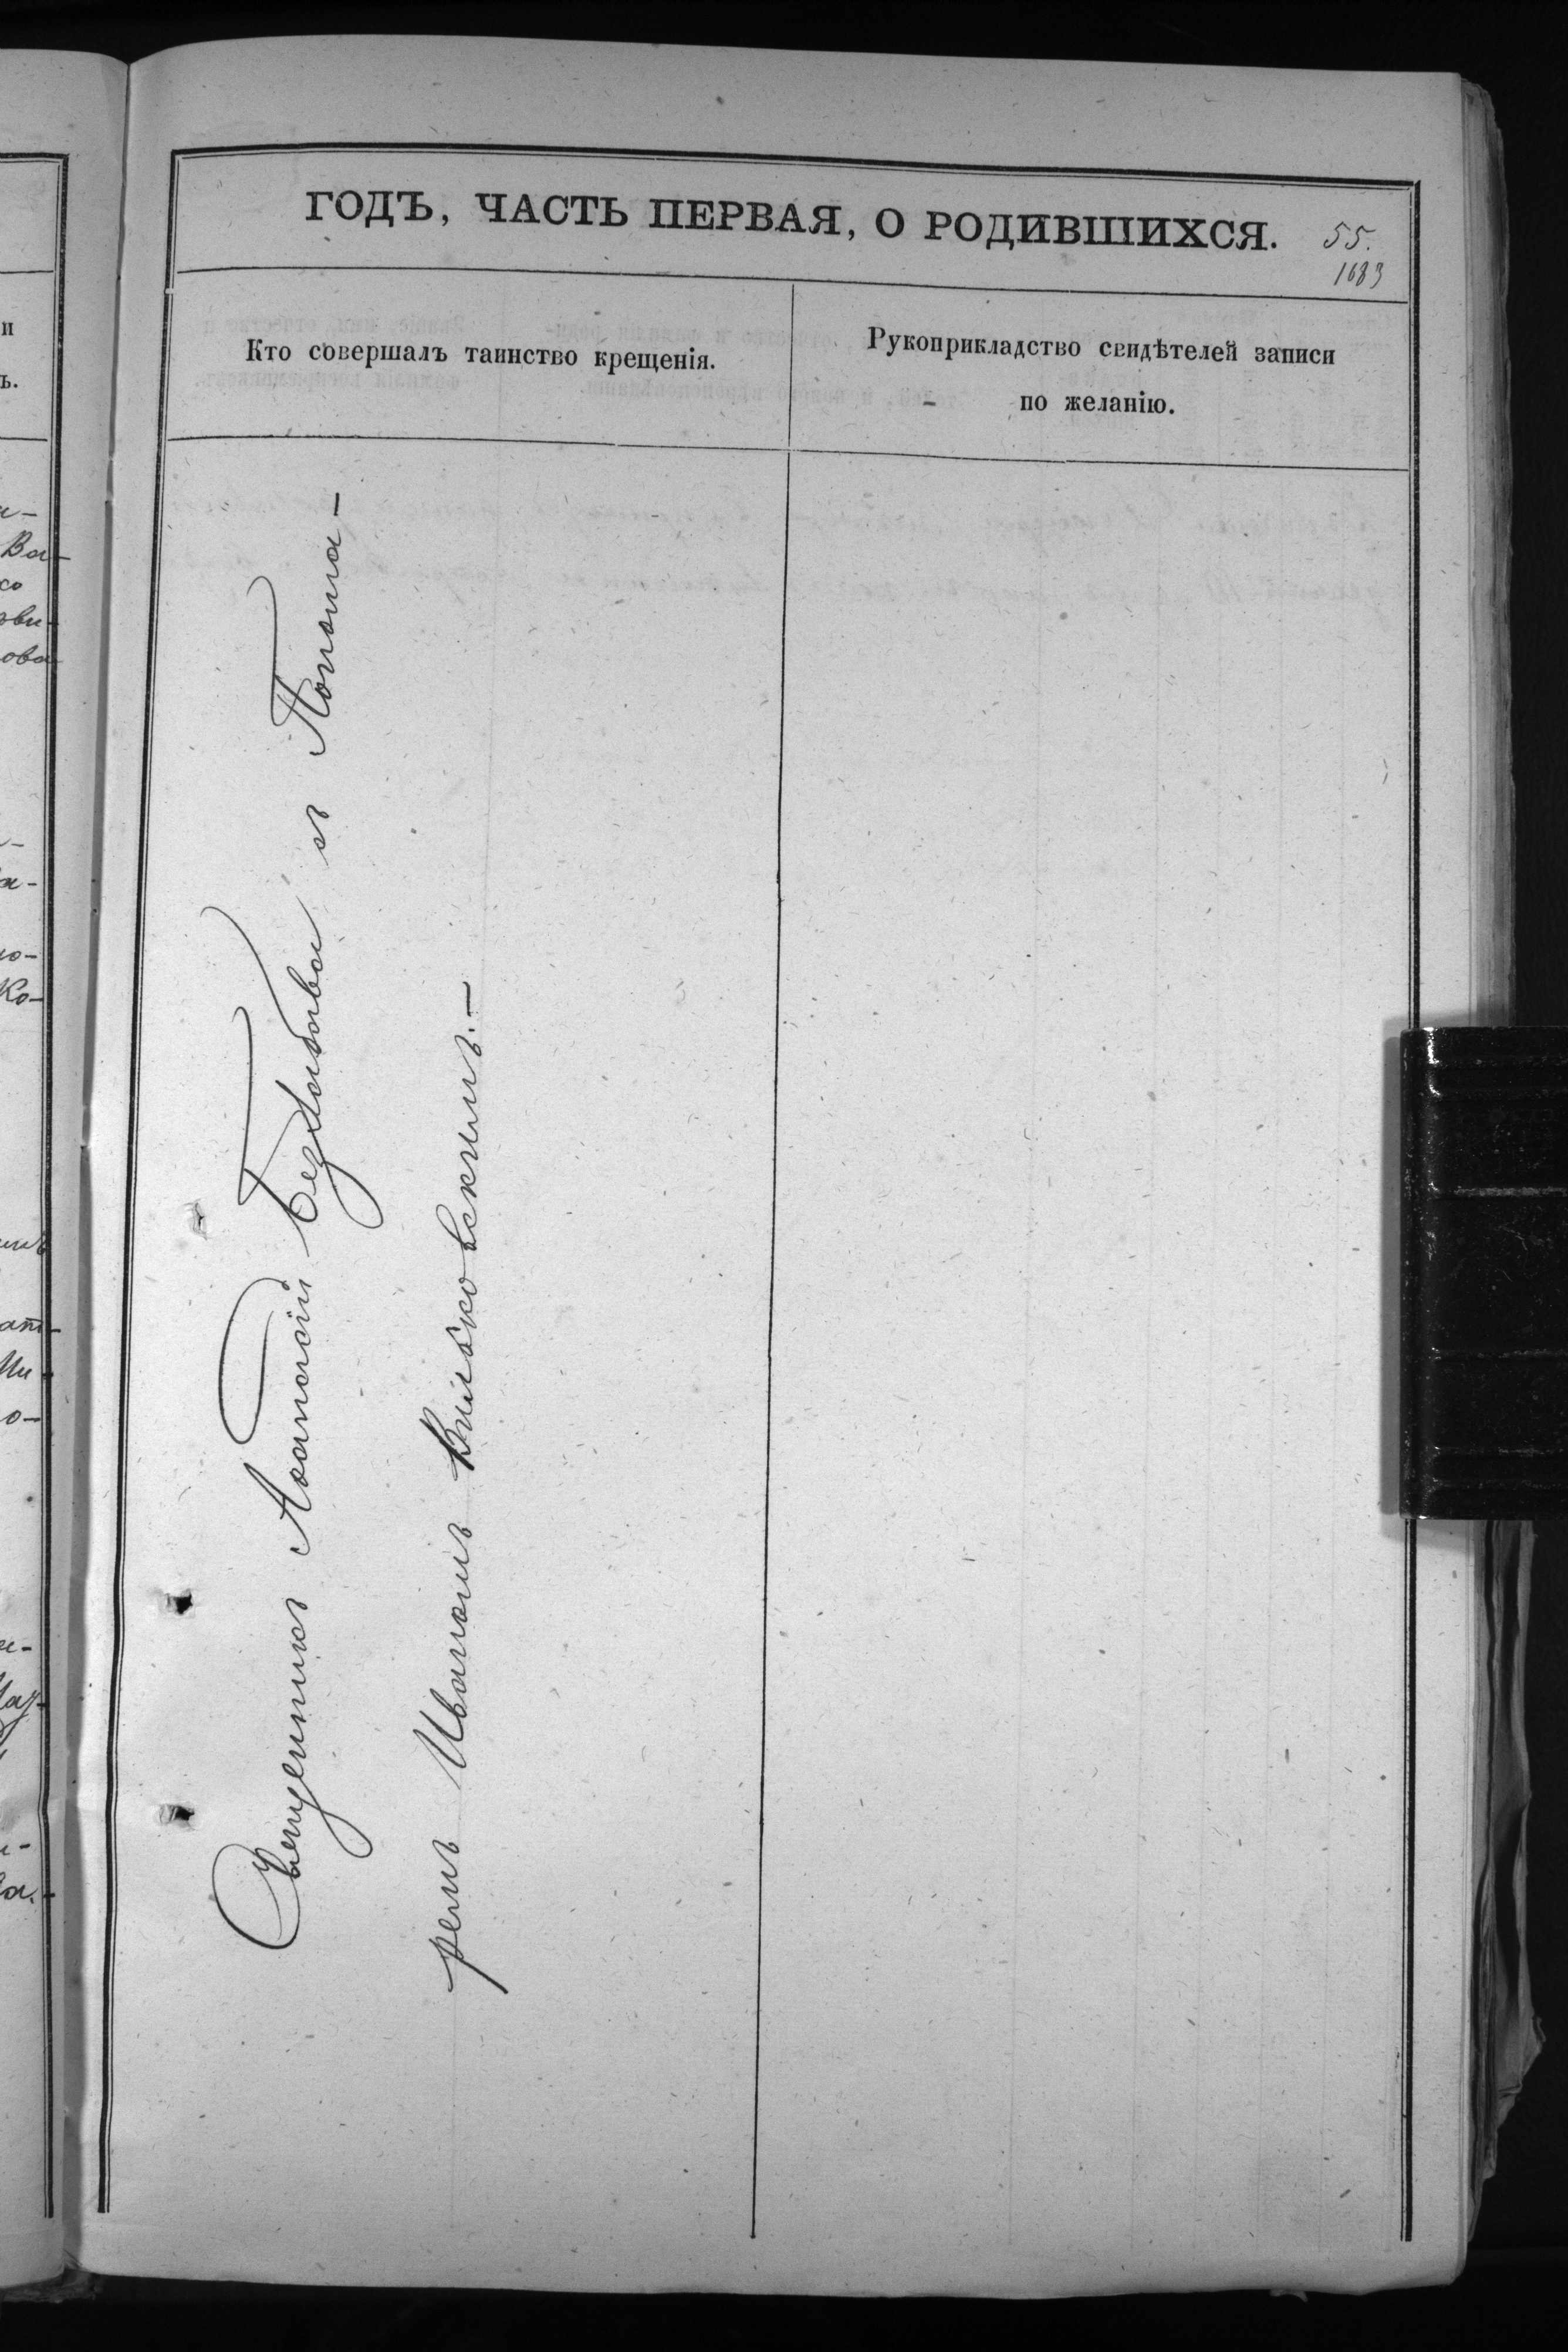 ГОДЪ, ЧАСТЬ ПЕРВАЯ, О РОДИВШИХСЯ.
55.
1683
Кто совершалъ таинство крещенія.
Рукоприкладство свидѣтелей записи
по желанію.
Священникъ Аѳанасій Безбабва съ Понома-
ремъ Иваномъ Вильковскимъ.-